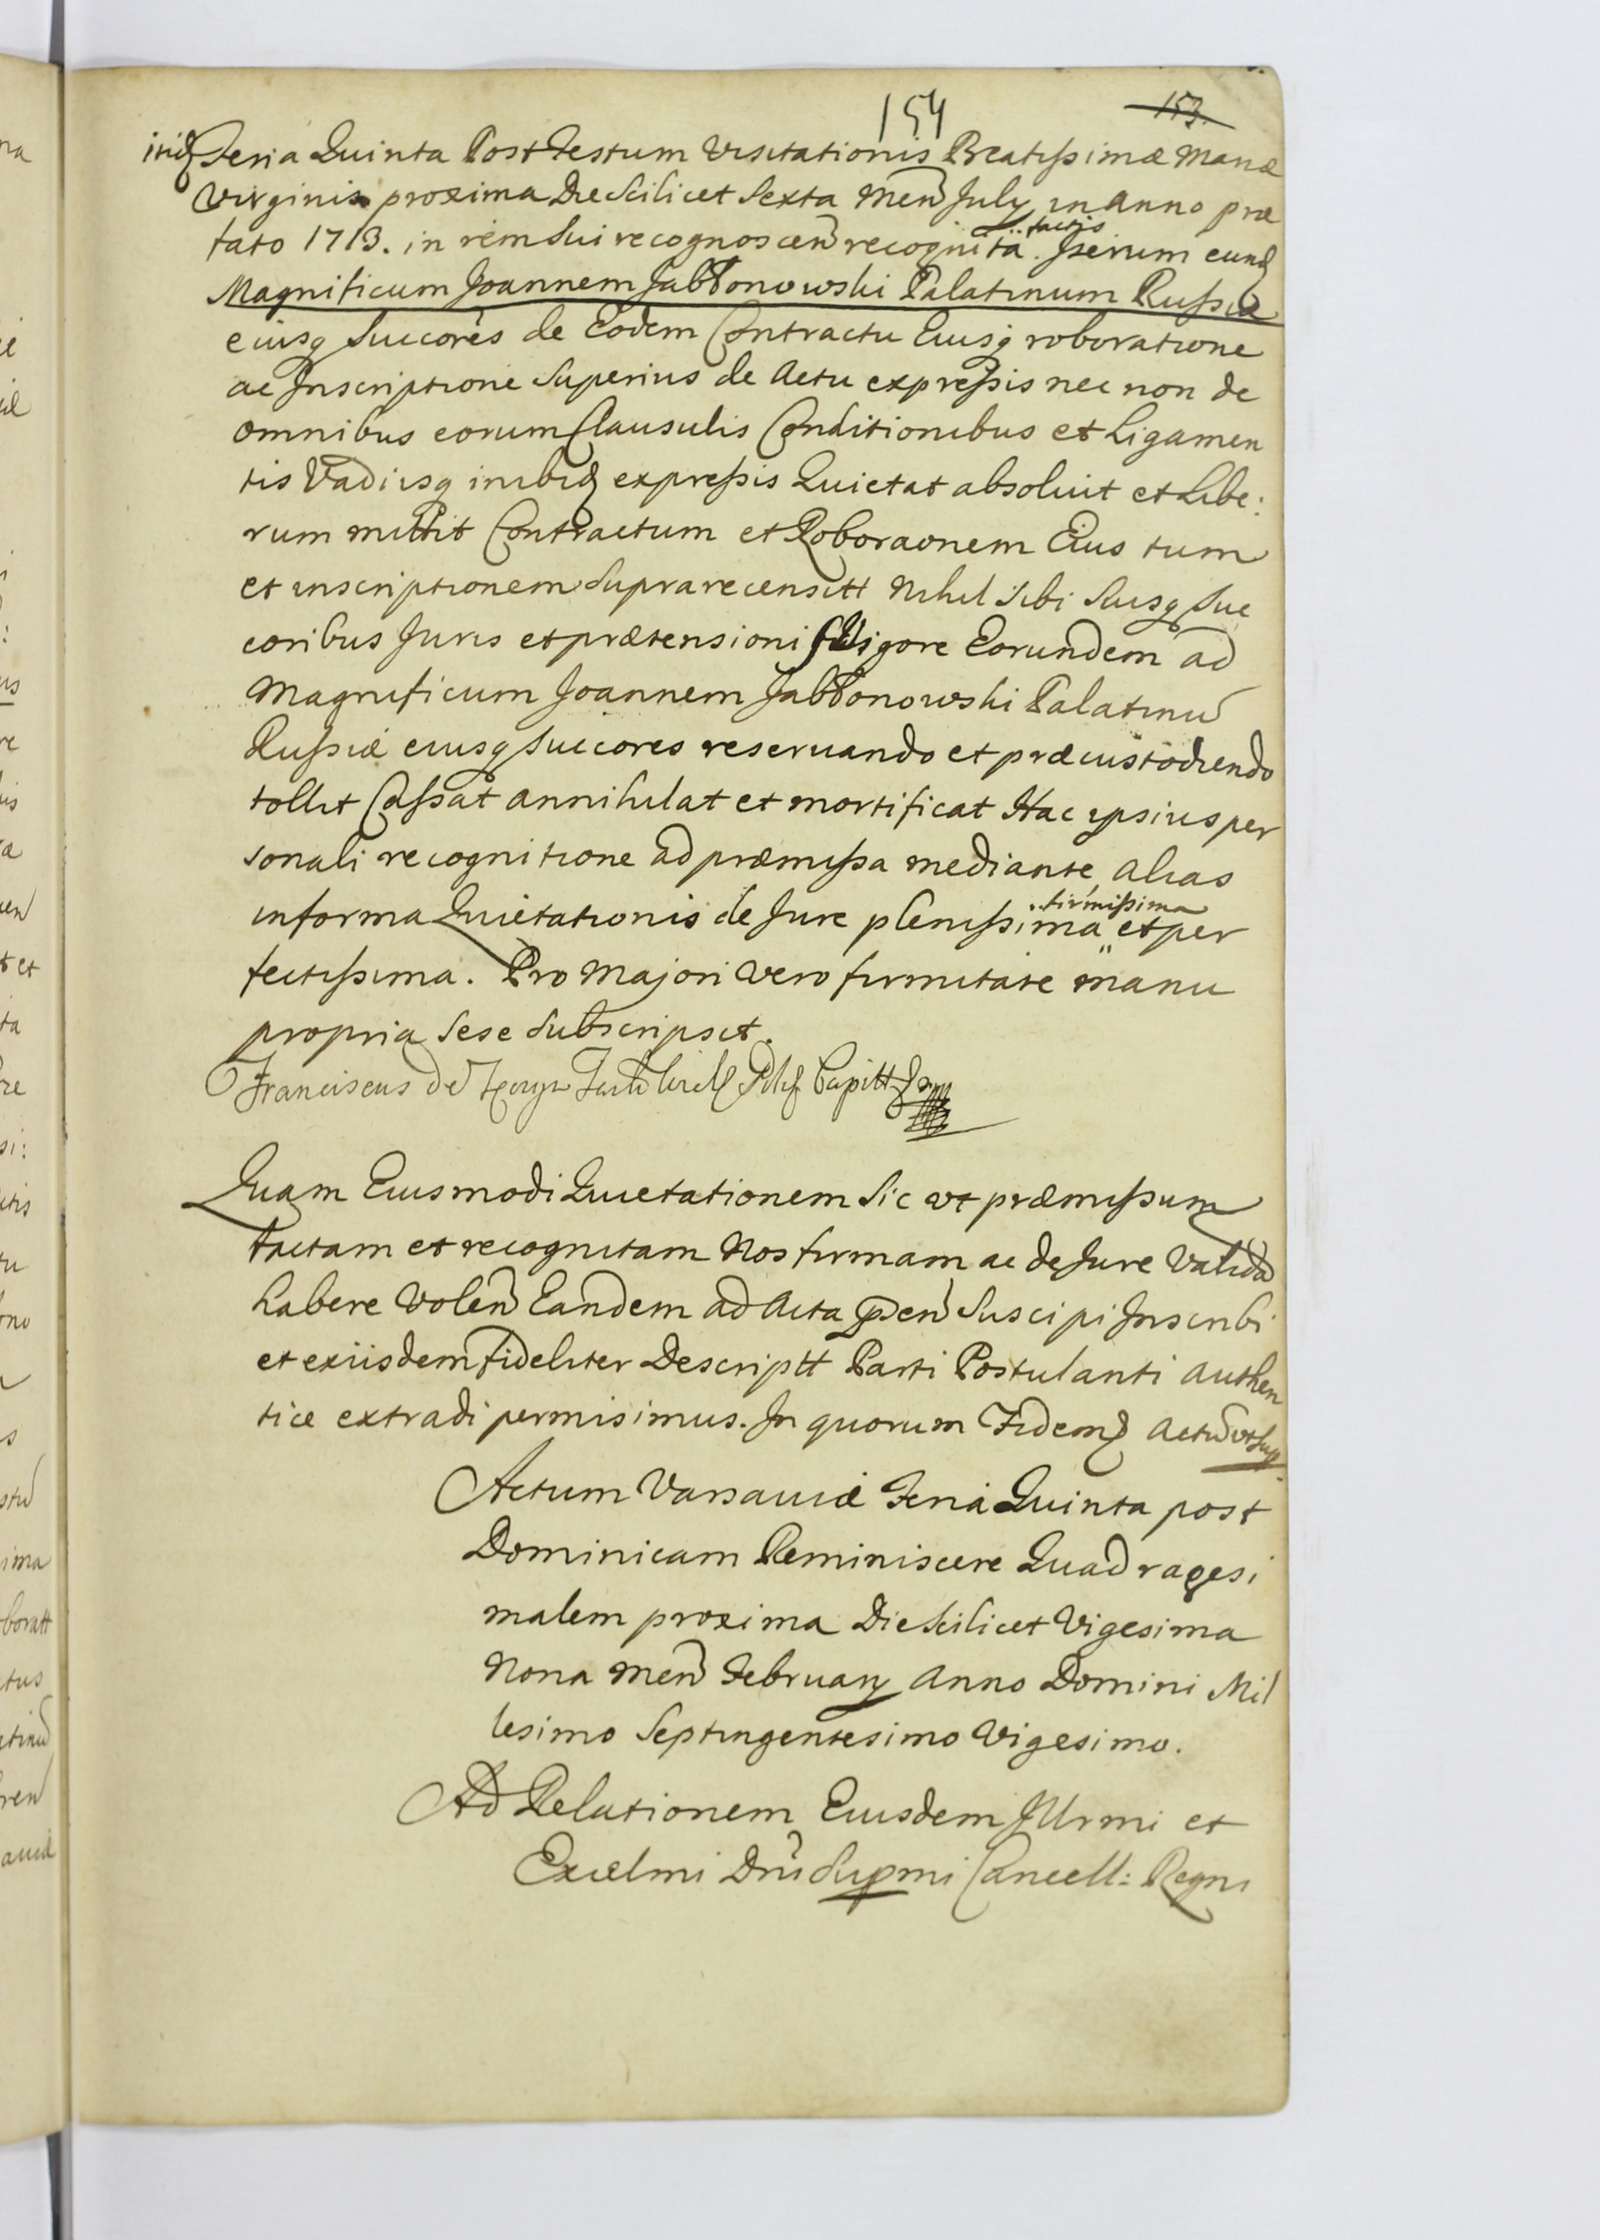 154 153.
Feria Quinta Post Festum Visitationis Beatissimæ Mariæ
Virginis proxima Die Scilicet Sexta Men July in Anno præ
factis
tato 1713. in rem sui recognoscen recognita. Iterum eund
Magnificum Joannem Jabłonowski Palatinum Russiæ
eiusq Succores de Eodem Contractu Eiusq roboratione
ac Inscriptione Superius de Actu expressis nec non de
omnibus eorum Clausulis Conditionibus et Ligamen
tis Vadiisq inibid expressis Quietat absoluit et Libe:
rum mittit Contractum et Roboraonem Eius tum
et inscriptionem Supra recensitt Nihil Sibi Suisq Suc
coribus Juris et prætensioni Vigore Eorundem ad
Magnificum Joannem Jabłonowski Palatinu
Russiæ eiusq Succores reseruando et præcustodiendo
tollit Cassat annihilat et mortificat Hac ipsius per
sonali recognitione ad præmissa mediante, alias
firmissima
in forma Quietationis de Jure plenissima et per
fectissima. Pro Majori Vero firmitate manu
propria Sese Subscripsit.
Franciscus de Capitt
Quam Eiusmodi Quietationem Sic vt præmissum
factam et recognitam Nos firmam ac de Jure Valida
habere Volen Eandem ad Acta pñ Suscipi Inscribi
et exiisdem fideliter Descriptt Parti Postulanti authen
tice extradi permisimus. In quorum Fidem Actu vt Sup
Actum Varsauiæ Feria Quinta post
Dominicam Reminiscere Quadragesi
malem proxima Die Scilicet Vigesima
Nona Men February Anno Domini Mil
lesimo Septingentesimo Vigesimo.
Ad Relationem Eiusdem Illrmi et
Excelmi Dni Supmi Cancell: Regni